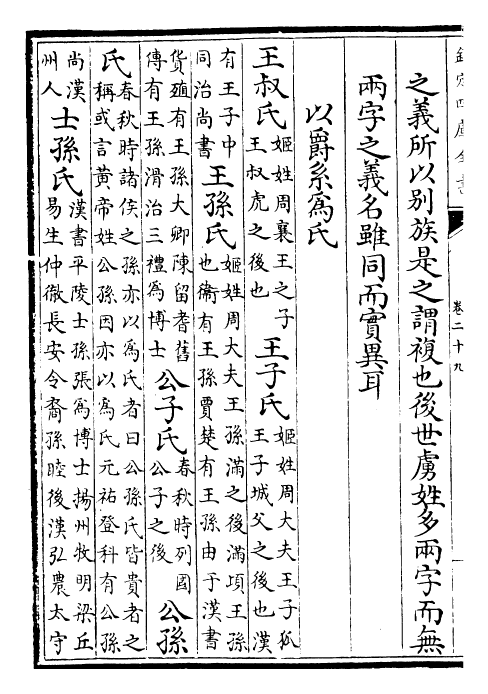 欽定四庫全書
卷二十九
之義所以别族是之謂複也後世虜姓多兩字而無
兩字之義名雖同而實異耳
以爵系為氏
王叔氏
姬姓周襄王之子
王叔虎之後也
王子氏
姬姓周大夫王子狐
王子城父之後也漢
有王子中
同治尚書
王孫氏
姬姓周大夫王孫滿之後滿項王孫
也衛有王孫賈楚有王孫由于漢書
貨殖有王孫大卿陳留耆舊
傳有王孫滑治三禮為博士
公子氏
春秋時列國
公子之後
公孫
氏
春秋時諸侯之孫亦以為氏者曰公孫氏皆貴者之
稱或言黄帝姓公孫因亦以為氏元祐登科有公孫
尚漢
州人
士孫氏
漢書平陵士孫張為博士揚州牧明梁丘
易生仲徹長安令裔孫睦後漢弘農太守